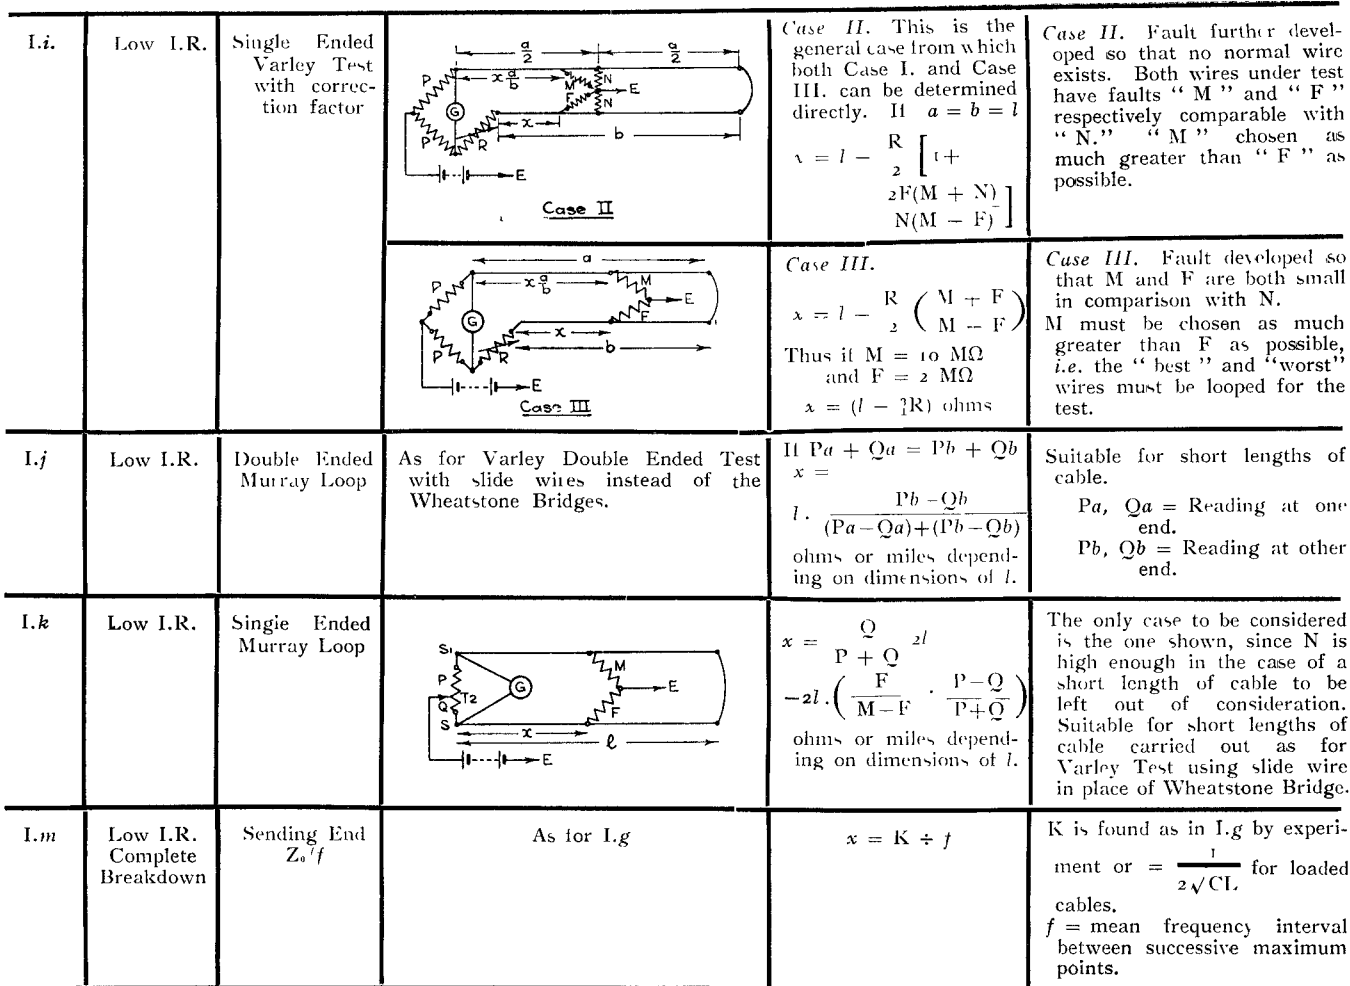 I.i.
Low I.R.
Single Ended
Varley Test
with correc-
tion factor
a/2
a/2
x a/b
P
M
N
G
E
F
N
P
R
x
b
E
Case II
Case II. This is the
general case from which
both Case I. and Case
III. can be determined
directly. If a = b = l
x = l − R/2 [ 1 +
2F(M + N)
N(M − F) ]
Case II. Fault further devel-
oped so that no normal wire
exists. Both wires under test
have faults “ M ” and “ F ”
respectively comparable with
“ N.” “ M ” chosen as
much greater than “ F ” as
possible.
a
x a/b
P
M
G
E
F
P
R
x
b
E
Case III
Case III.
x = l − R/2 ( M + F / M − F )
Thus if M = 10 MΩ
and F = 2 MΩ
x = (l − R) ohms
Case III. Fault developed so
that M and F are both small
in comparison with N.
M must be chosen as much
greater than F as possible,
i.e. the “ best ” and “worst”
wires must be looped for the
test.
I.j
Low I.R.
Double Ended
Murray Loop
As for Varley Double Ended Test
with slide wires instead of the
Wheatstone Bridges.
If Pa + Qa = Pb + Qb
x =
l . Pb − Qb / (Pa − Qa) + (Pb − Qb)
ohms or miles depend-
ing on dimensions of l.
Suitable for short lengths of
cable.
Pa, Qa = Reading at one
end.
Pb, Qb = Reading at other
end.
I.k
Low I.R.
Single Ended
Murray Loop
S1
P
T2
Q
S
G
M
E
F
x
l
E
x = Q / P + Q 2l
−2l . ( F / M − F . P − Q / P + Q )
ohms or miles depend-
ing on dimensions of l.
The only case to be considered
is the one shown, since N is
high enough in the case of a
short length of cable to be
left out of consideration.
Suitable for short lengths of
cable carried out as for
Varley Test using slide wire
in place of Wheatstone Bridge.
I.m
Low I.R.
Complete
Breakdown
Sending End
Z₀/f
As for I.g
x = K ÷ f
K is found as in I.g by experi-
ment or = 1 / 2√CL for loaded
cables.
f = mean frequency interval
between successive maximum
points.